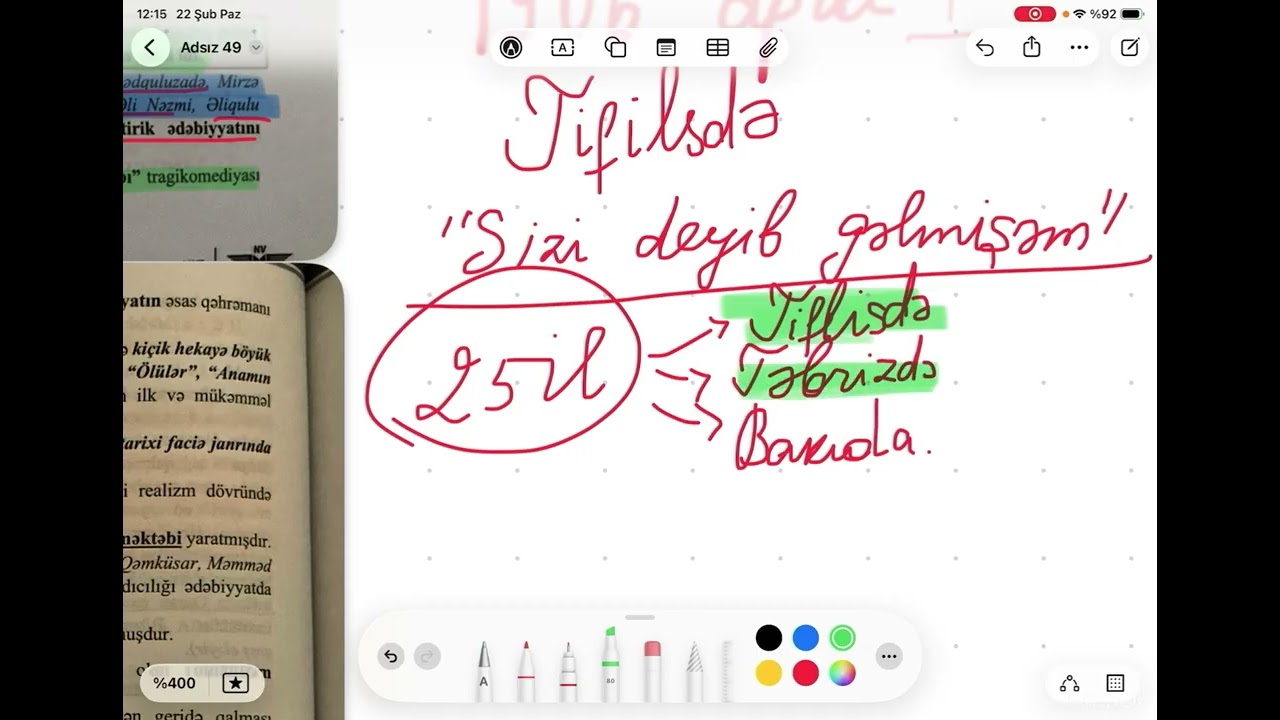 12:15 22 Şub Paz
%92
Adsız 49
1906
Tifilsdə
"Sizi deyib gəlmişəm"
25 il
Tiflisdə
Təbrizdə
Bakıda.
ədquluzadə, Mirzə
Əli Nəzmi, Əliqulu
tirik ədəbiyyatını
tragikomediyası
NV
yatın əsas qəhrəmanı
kiçik hekayə böyük
"Ölülər", "Anamın
ilk və mükəmməl
tarixi faciə janrında
i realizm dövründə
məktəbi yaratmışdır.
Qəmküsar, Məmməd
dıcılığı ədəbiyyatda
uşdur.
ən geridə qalması
%400
A
80